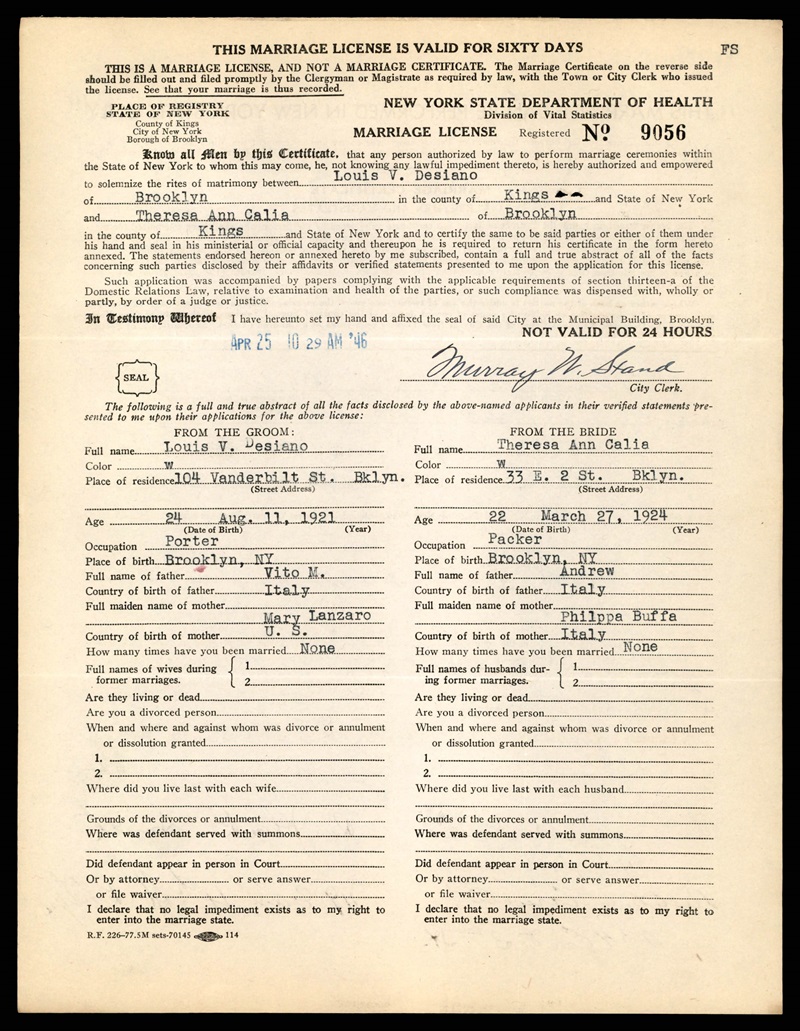 THIS MARRIAGE LICENSE IS VALID FOR SIXTY DAYS
FS
THIS IS A MARRIAGE LICENSE, AND NOT A MARRIAGE CERTIFICATE. The Marriage Certificate on the reverse side
should be filled out and filed promptly by the Clergyman or Magistrate as required by law, with the Town or City Clerk who issued
the license. See that your marriage is thus recorded.
PLACE OF REGISTRY
STATE OF NEW YORK
County of Kings
City of New York
Borough of Brooklyn
NEW YORK STATE DEPARTMENT OF HEALTH
Division of Vital Statistics
MARRIAGE LICENSE Registered No 9056
Know all Men by this Certificate, that any person authorized by law to perform marriage ceremonies within
the State of New York to whom this may come, he, not knowing any lawful impediment thereto, is hereby authorized and empowered
to solemnize the rites of matrimony between Louis V. Desiano
of Brooklyn in the county of Kings and State of New York
and Theresa Ann Calia of Brooklyn
in the county of Kings and State of New York and to certify the same to be said parties or either of them under
his hand and seal in his ministerial or official capacity and thereupon he is required to return his certificate in the form hereto
annexed. The statements endorsed hereon or annexed hereto by me subscribed, contain a full and true abstract of all of the facts
concerning such parties disclosed by their affidavits or verified statements presented to me upon the application for this license.
Such application was accompanied by papers complying with the applicable requirements of section thirteen-a of the
Domestic Relations Law, relative to examination and health of the parties, or such compliance was dispensed with, wholly or
partly, by order of a judge or justice.
In Testimony Whereof I have hereunto set my hand and affixed the seal of said City at the Municipal Building, Brooklyn.
NOT VALID FOR 24 HOURS
APR 25 10 29 AM '46
SEAL
Murray W. Stand
City Clerk.
The following is a full and true abstract of all the facts disclosed by the above-named applicants in their verified statements pre-
sented to me upon their applications for the above license:
FROM THE GROOM:
Full name Louis V. Desiano
Color W
Place of residence 104 Vanderbilt St. Bklyn.
(Street Address)
Age 24 Aug. 11, 1921
(Date of Birth) (Year)
Occupation Porter
Place of birth Brooklyn, NY
Full name of father Vito M.
Country of birth of father Italy
Full maiden name of mother
Mary Lanzaro
Country of birth of mother U. S.
How many times have you been married None
Full names of wives during
former marriages.
1
2
Are they living or dead
Are you a divorced person
When and where and against whom was divorce or annulment
or dissolution granted
1.
2.
Where did you live last with each wife
Grounds of the divorces or annulment
Where was defendant served with summons
Did defendant appear in person in Court
Or by attorney or serve answer
or file waiver
I declare that no legal impediment exists as to my right to
enter into the marriage state.
R.F. 226-77.5M sets-70145 114
FROM THE BRIDE
Full name Theresa Ann Calia
Color W
Place of residence 33 E. 2 St. Bklyn.
(Street Address)
Age 22 March 27, 1924
(Date of Birth) (Year)
Occupation Packer
Place of birth Brooklyn, NY
Full name of father Andrew
Country of birth of father Italy
Full maiden name of mother
Philppa Buffa
Country of birth of mother Italy
How many times have you been married None
Full names of husbands dur-
ing former marriages.
1
2
Are they living or dead
Are you a divorced person
When and where and against whom was divorce or annulment
or dissolution granted
1.
2.
Where did you live last with each husband
Grounds of the divorces or annulment
Where was defendant served with summons
Did defendant appear in person in Court
Or by attorney or serve answer
or file waiver
I declare that no legal impediment exists as to my right to
enter into the marriage state.